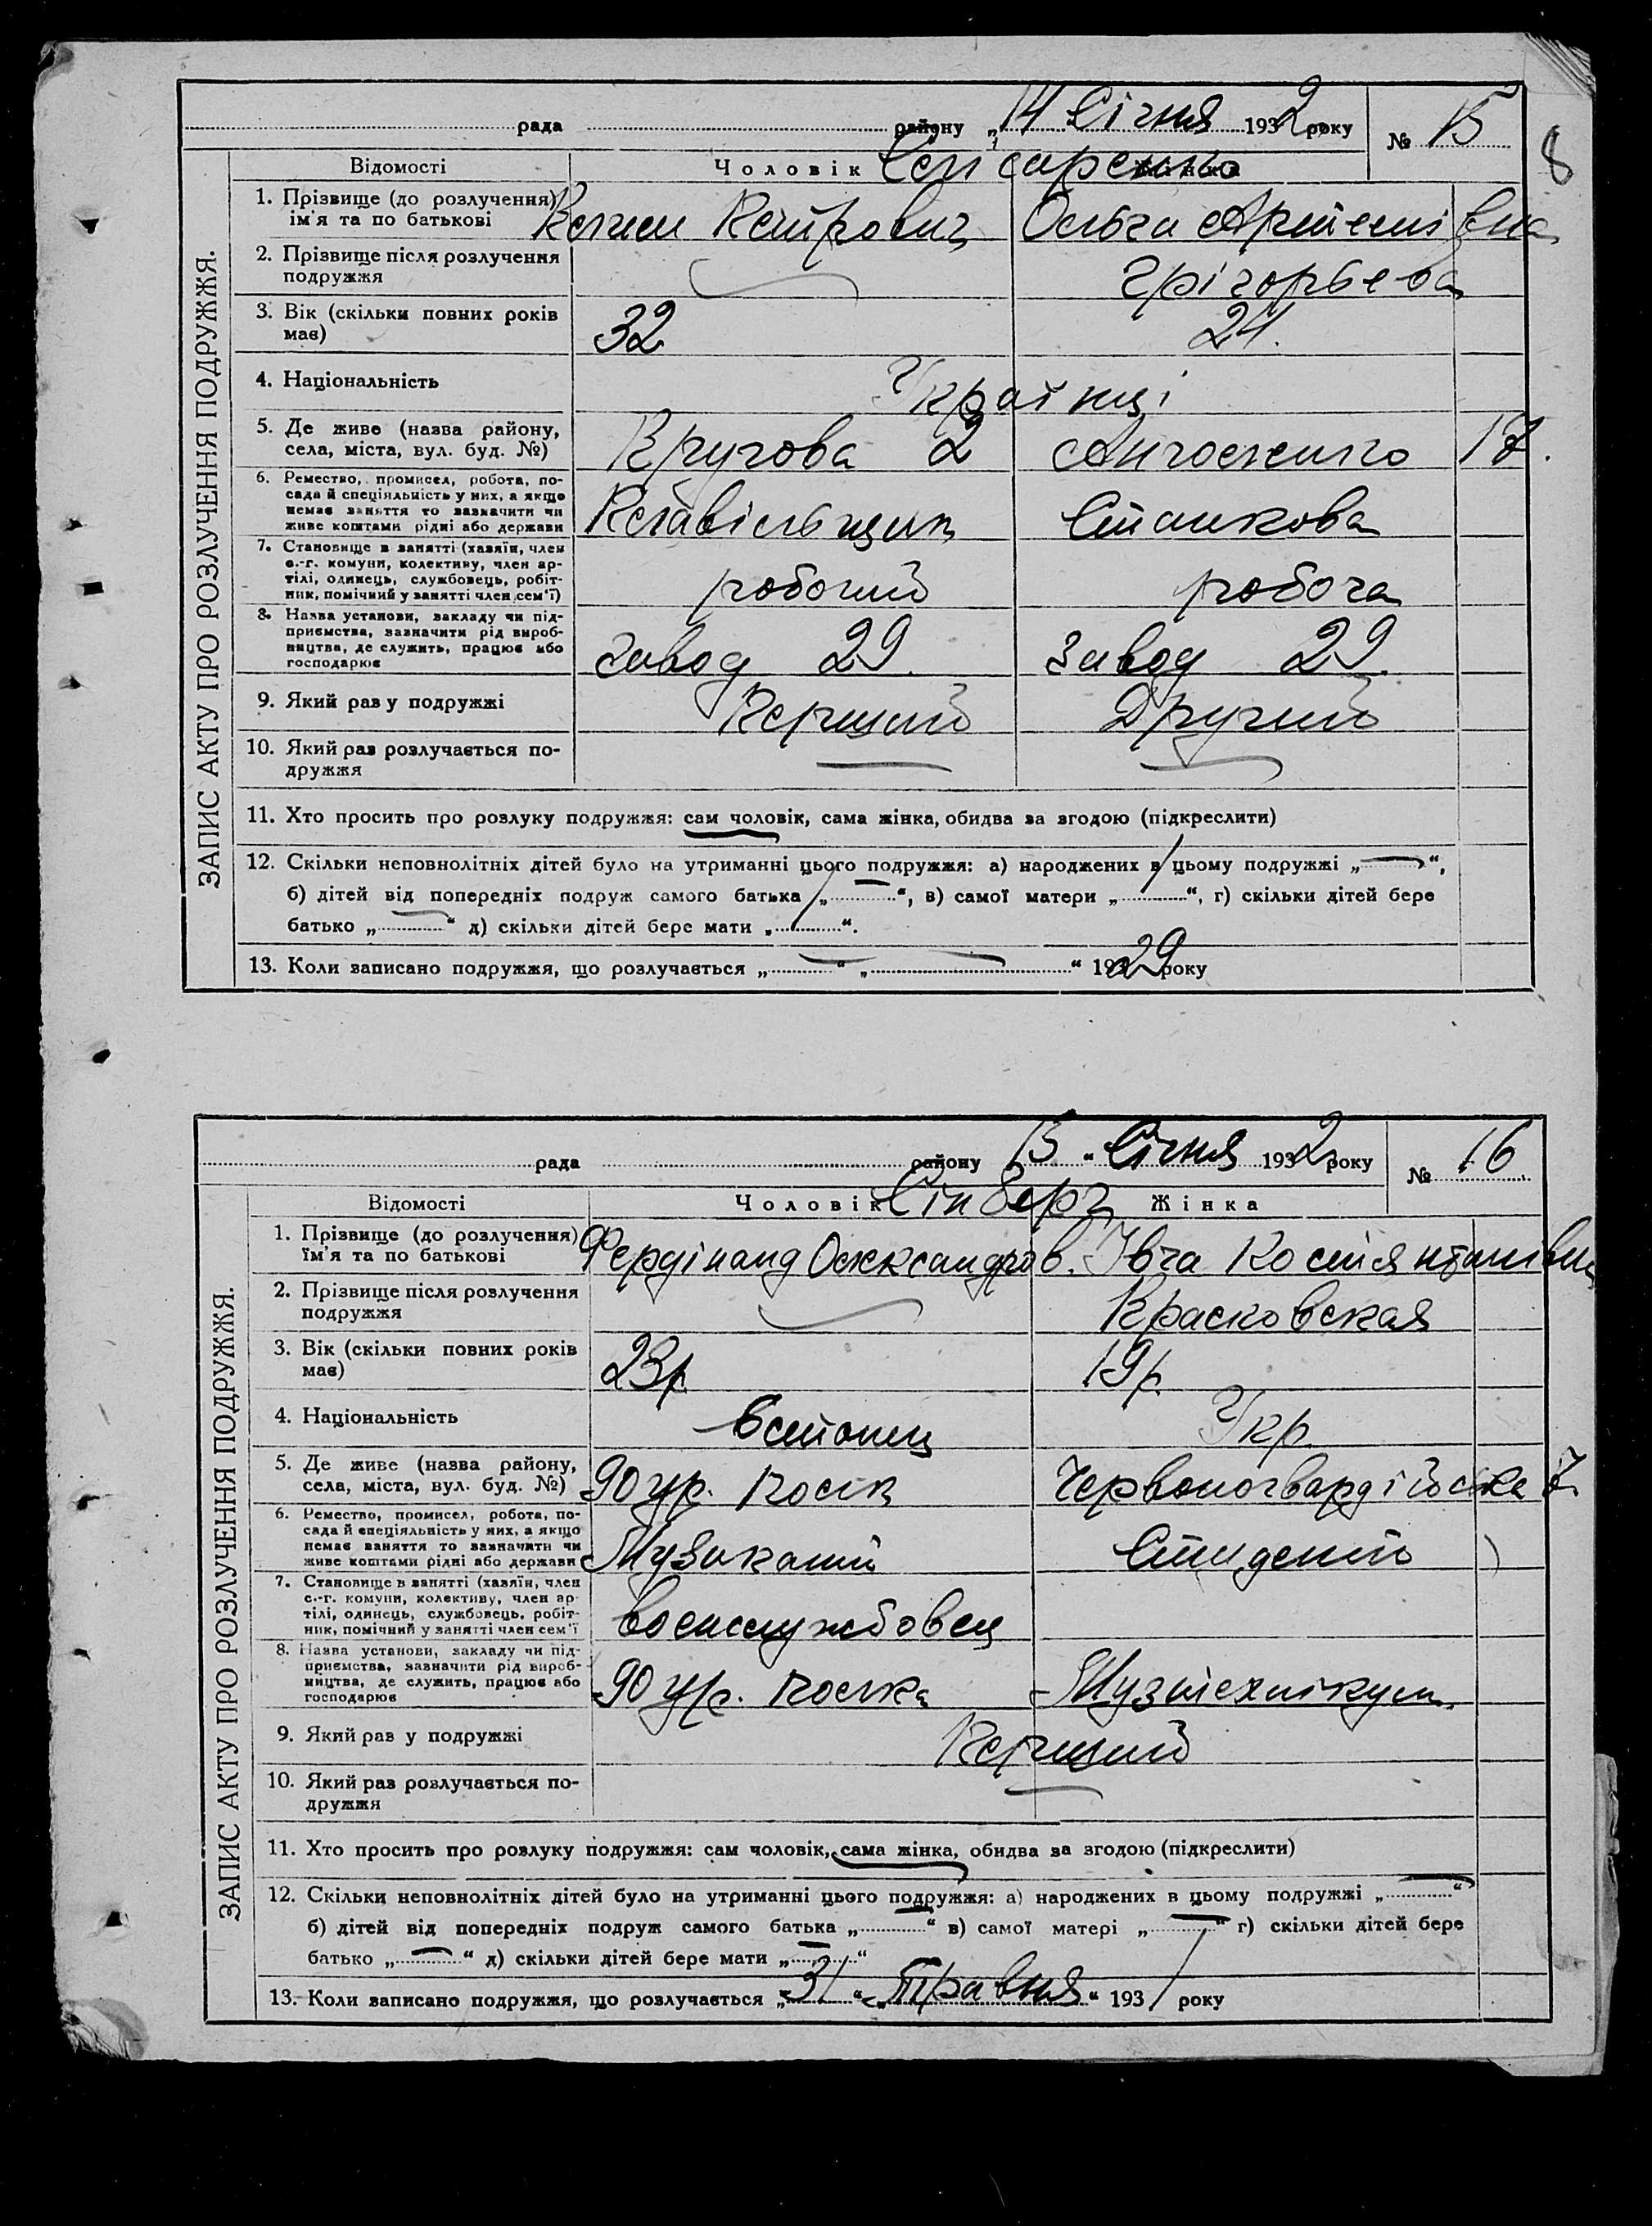 8
рада району „14 Січня 1932 року № 15
Відомості Чоловік
ЗАПИС АКТУ ПРО РОЗЛУЧЕННЯ ПОДРУЖЖЯ.
1. Прізвище (до розлучення) ім'я та по батькові
Петрович Ольга Артемівна
2. Прізвище після розлучення подружжя
Грігорьева
3. Вік (скільки повних років має)
32 24.
4. Національність
Українці
5. Де живе (назва району, села, міста, вул. буд. №)
Кругова 2 17.
6. Ремество, промисел, робота, посада й спеціяльність у них, а якщо немає заняття то зазначити чи живе коштами рідні або держави
Станкова
7. Становище в занятті (хазяїн, член с.-г. комуни, колективу, член артілі, одинець, службовець, робітник, помічний у занятті член сем'ї)
робочий робоча
8. Назва установи, закладу чи підприємства, зазначити рід виробництва, де служить, працює або господарює
Завод 29. Завод 29.
9. Який раз у подружжі
Перший Другий
10. Який раз розлучається подружжя
11. Хто просить про розлуку подружжя: сам чоловік, сама жінка, обидва за згодою (підкреслити)
12. Скільки неповнолітніх дітей було на утриманні цього подружжя: а) народжених в цьому подружжі „ — “,
б) дітей від попередніх подруж самого батька „ — “, в) самої матери „ “, г) скільки дітей бере
батько „ — “ д) скільки дітей бере мати „ “.
13. Коли записано подружжя, що розлучається „ — “ „ — “ 1929 року
рада району 15 „Січня 1932 року № 16
Відомості Чоловік Сінберг Жінка
ЗАПИС АКТУ ПРО РОЗЛУЧЕННЯ ПОДРУЖЖЯ.
1. Прізвище (до розлучення) їм'я та по батькові
Фердінанд Олександров. Костянтинівна
2. Прізвище після розлучення подружжя
Красковская
3. Вік (скільки повних років має)
23р. 19р.
4. Національність
Естонец Укр.
5. Де живе (назва району, села, міста, вул. буд. №)
90 Червоногвардійська 7.
6. Ремество, промисел, робота, посада й спеціяльність у них, а якщо немає заняття то зазначити чи живе коштами рідні або держави
Музикант Студент
7. Становище в занятті (хазяїн, член с.-г. комуни, колективу, член артілі, одинець, службовець, робітник, помічний у занятті член сем'ї
военслужбовец
8. Назва установи, закладу чи підприємства, зазначити рід виробництва, де служить, працює або господарює
90 Музтехнікум.
9. Який раз у подружжі
Перший
10. Який раз розлучається подружжя
11. Хто просить про розлуку подружжя: сам чоловік, сама жінка, обидва за згодою (підкреслити)
12. Скільки неповнолітніх дітей було на утриманні цього подружжя: а) народжених в цьому подружжі „ — “
б) дітей від попередніх подруж самого батька „ — “ в) самої матері „ — “ г) скільки дітей бере
батько „ — “ д) скільки дітей бере мати „ — “
13. Коли записано подружжя, що розлучається „31“ „Травня“ 1931 року